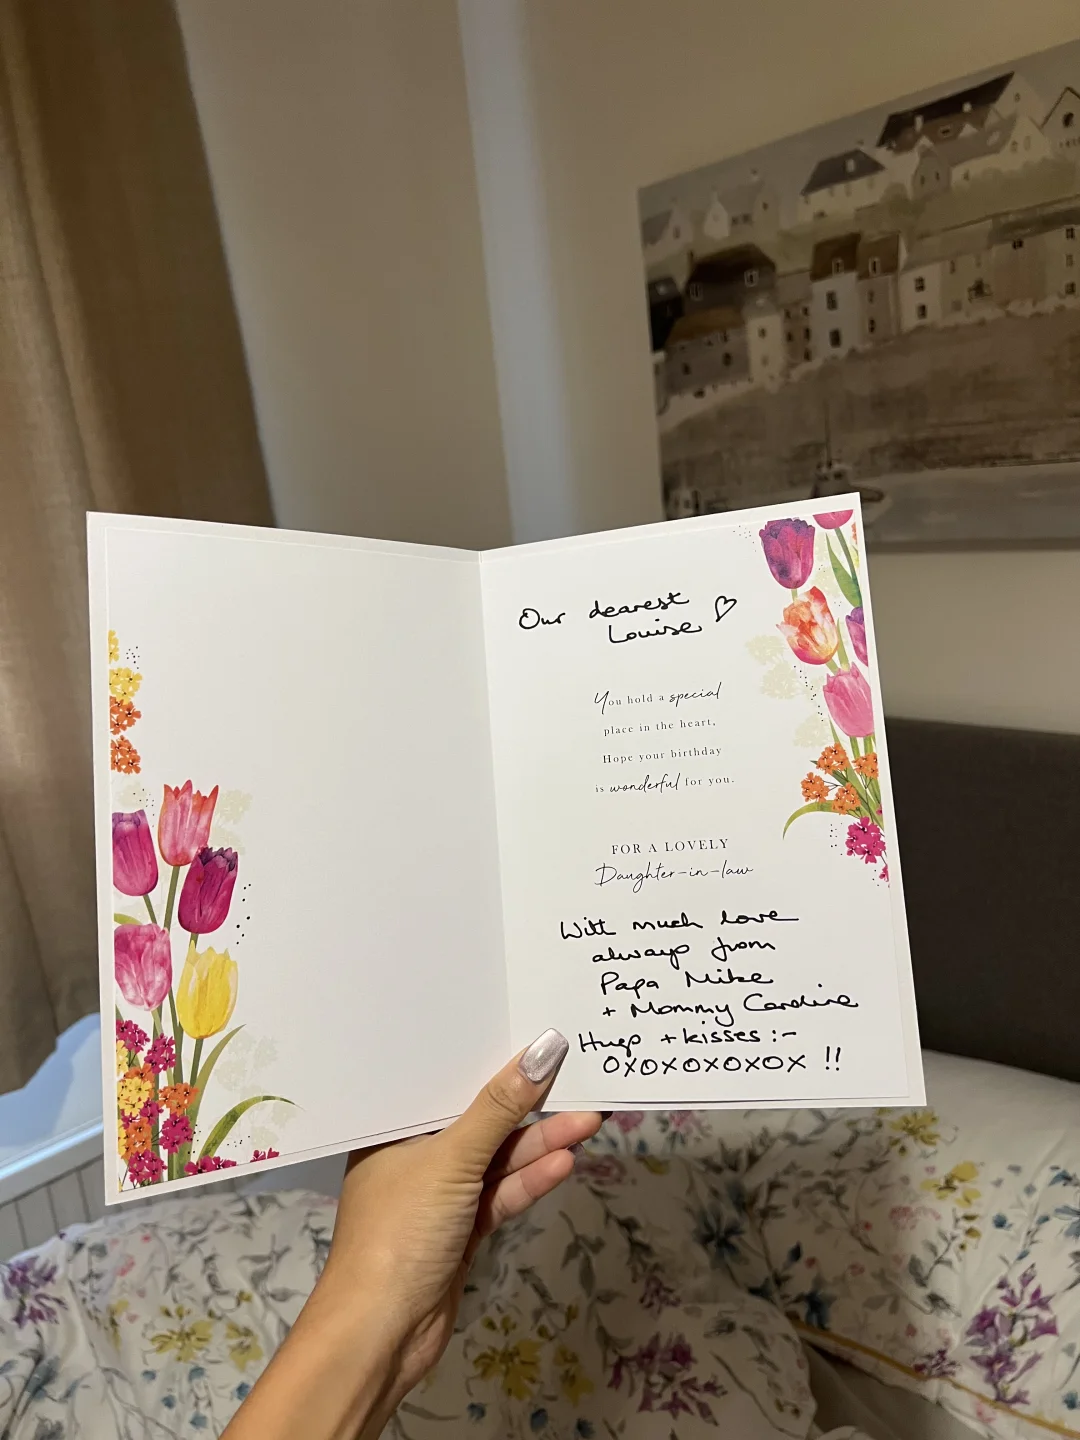 Our dearest
Louise ♡
You hold a special
place in the heart,
Hope your birthday
is wonderful for you.
FOR A LOVELY
Daughter-in-law
With much love
always from
Papa Mike
+ Mommy Caroline
Hugs + kisses :-
OXOXOXOXOX !!